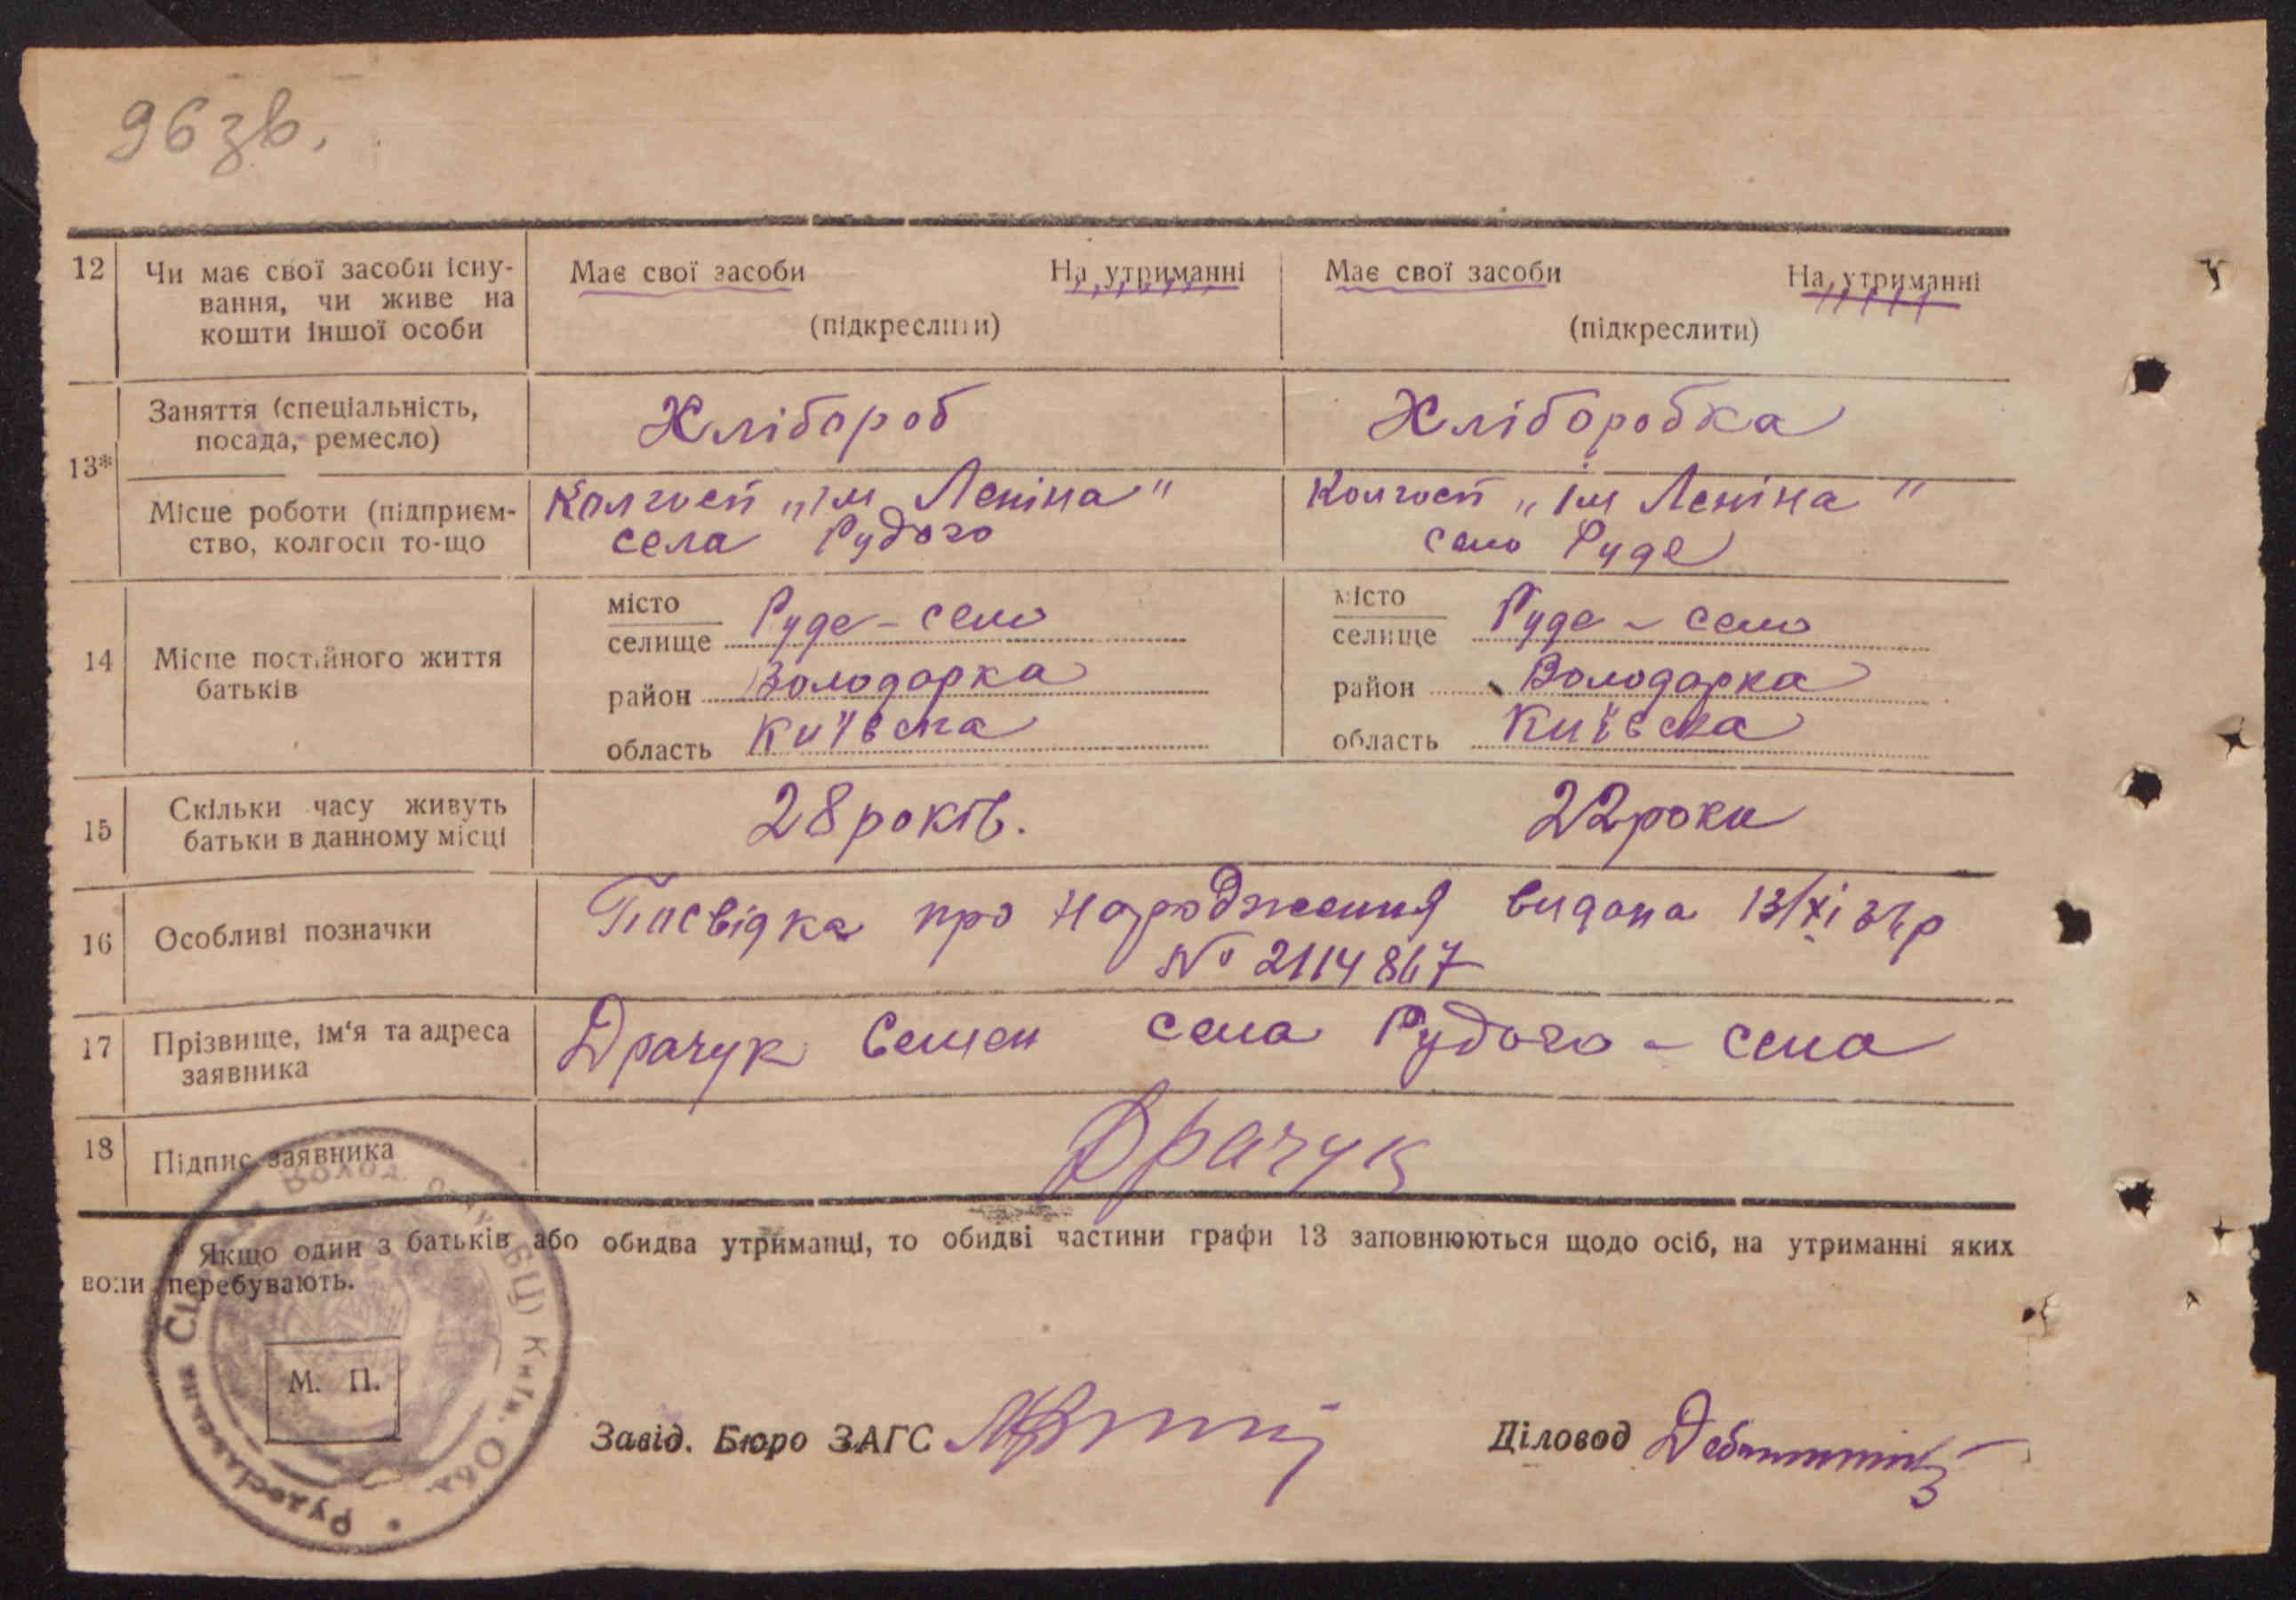 96 зв.
12 Чи має свої засоби існу- Має свої засоби На утриманні Має свої засоби На утриманні
вання, чи живе на
кошти іншої особи (підкреслити) (підкреслити)
Заняття (спеціальність, Хлібороб Хліборобка
посада, ремесло)
13*
Місце роботи (підприєм- Колгосп „ім Леніна" Колгосп „ім Леніна"
ство, колгосп то-що села Рудого село Руде
місто місто
селище Руде-село селище Руде-село
14 Місце постійного життя район Володарка район Володарка
батьків область Київска область Київска
15 Скільки часу живуть 28 років. 22 роки
батьки в данному місці
16 Особливі позначки Посвідка про народження видана 13/XI
№ 2114867
17 Прізвище, ім'я та адреса Драчук Семен села Рудого-села
заявника
18 Підпис заявника Драчук
* Якщо один з батьків або обидва утриманці, то обидві частини графи 13 заповнюються щодо осіб, на утриманні яких
вони перебувають.
М. П.
Завід. Бюро ЗАГС Діловод
Рудосільська Волод. Київ. Обл